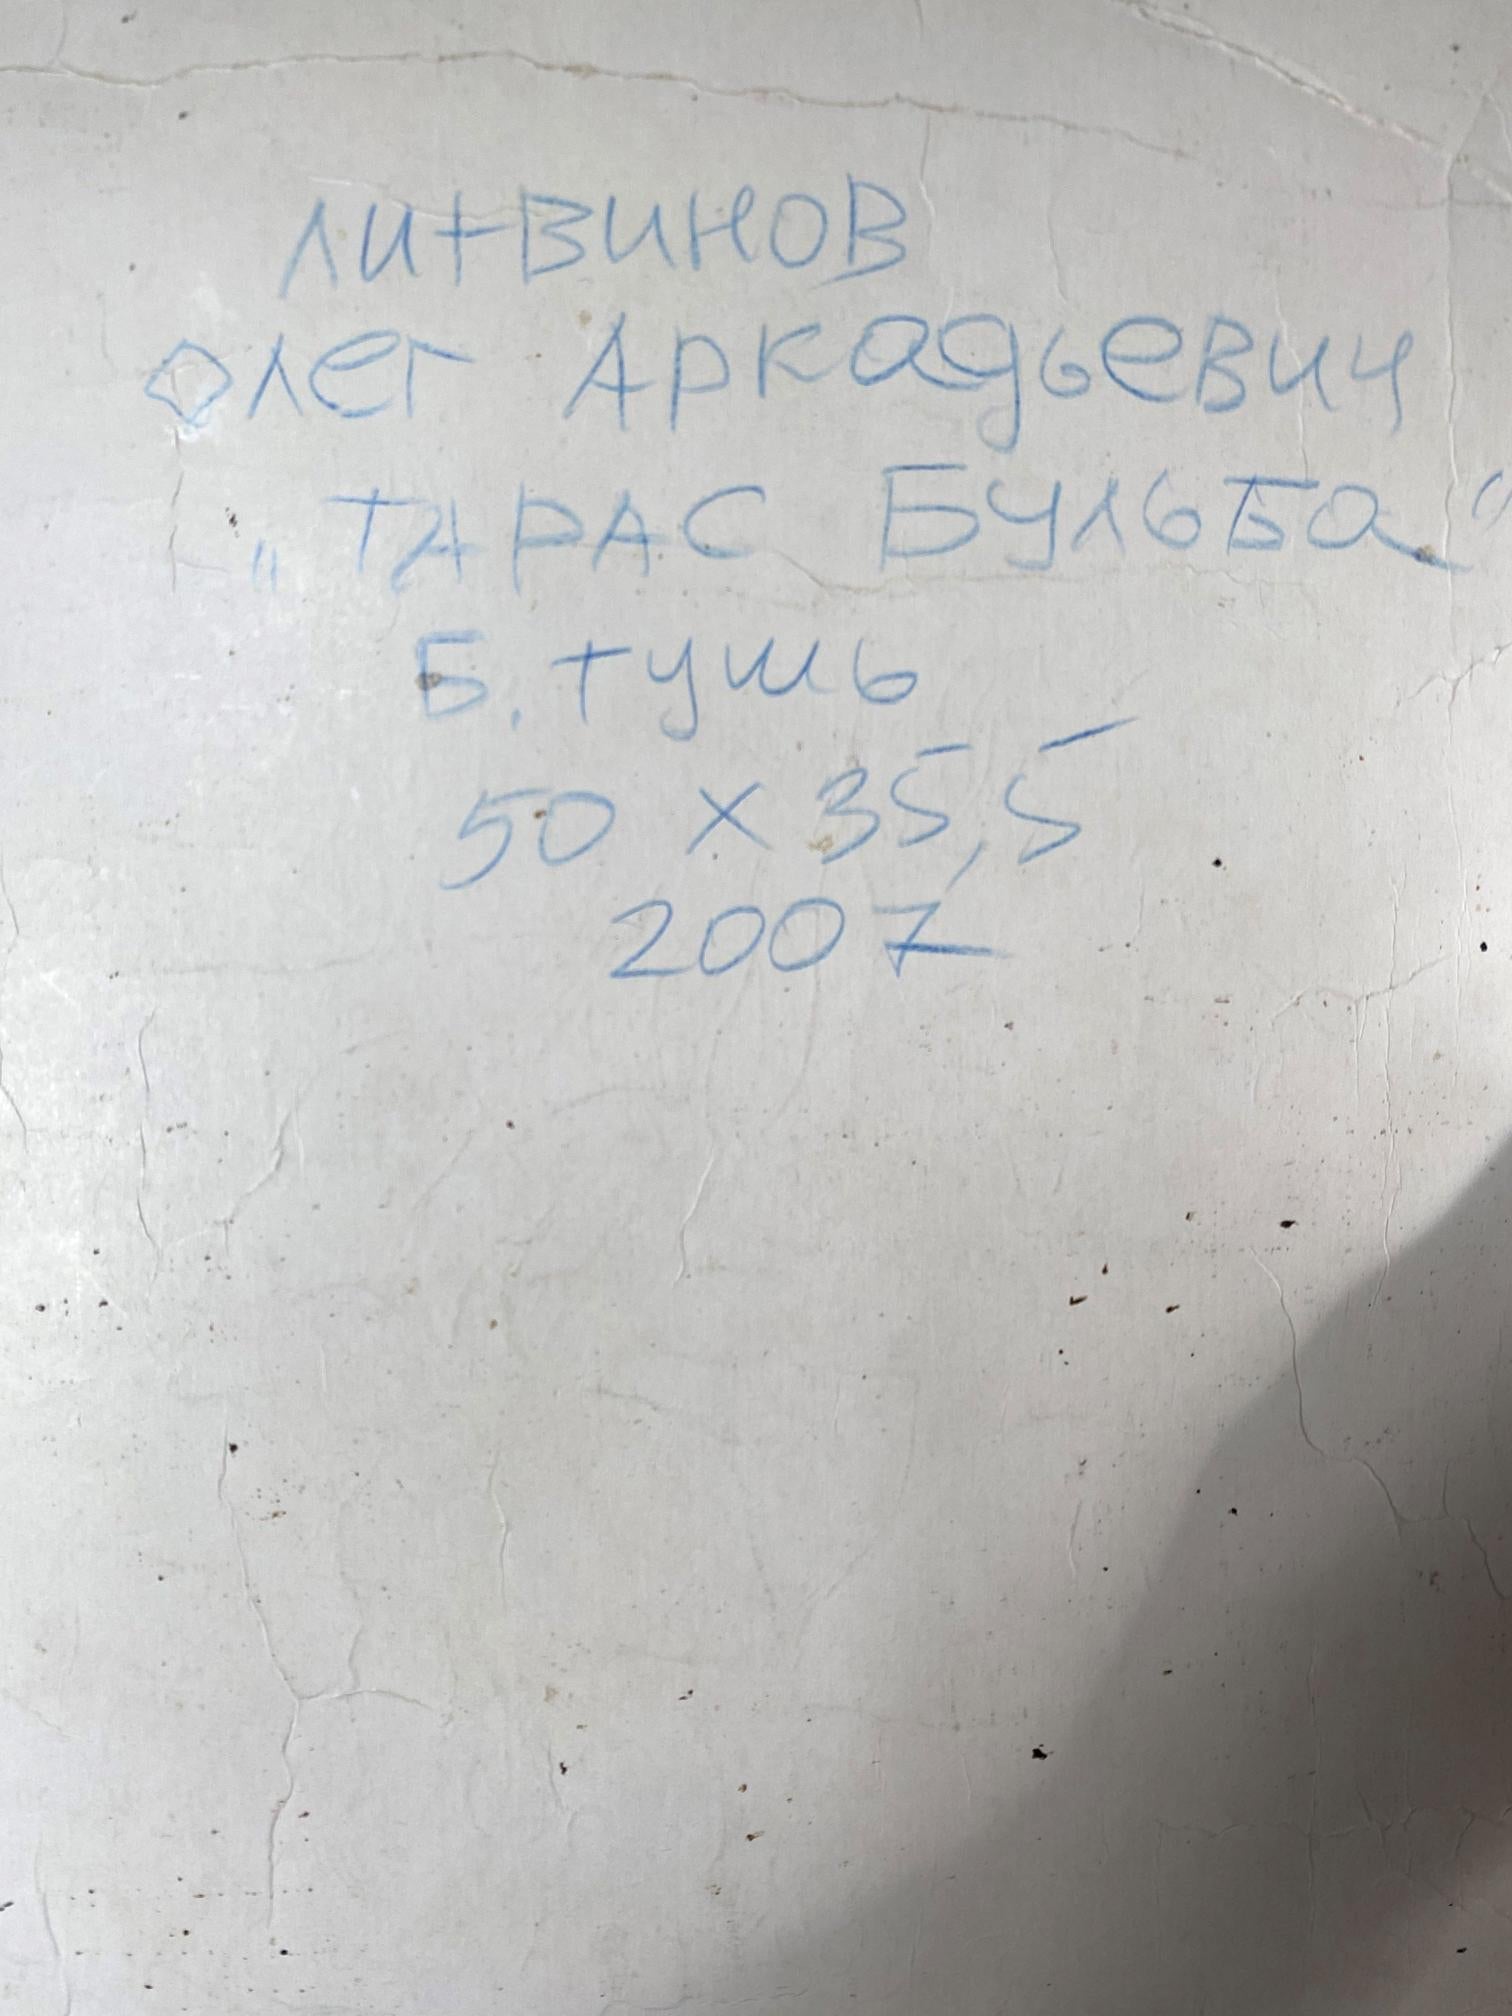 ЛИТВИНОВ
Олег Аркадьевич
„ТАРАС БУЛЬБа"
Б. тушь
50 × 35,5
2007